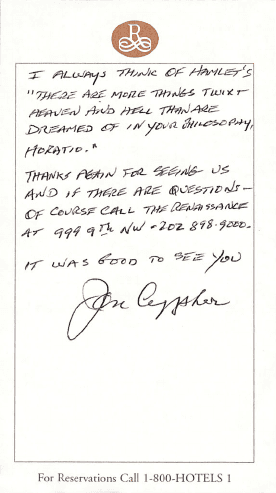 R
I ALWAYS THINK OF HAMLET'S
"THERE ARE MORE THINGS TWIXT
HEAVEN AND HELL THAN ARE
DREAMED OF IN YOUR PHILOSOPHY,
HORATIO."
THANKS AGAIN FOR SEEING US
AND IF THERE ARE QUESTIONS –
OF COURSE CALL THE RENAISSANCE
AT 999 9TH NW - 202 898-9000.
IT WAS GOOD TO SEE YOU
For Reservations Call 1-800-HOTELS 1